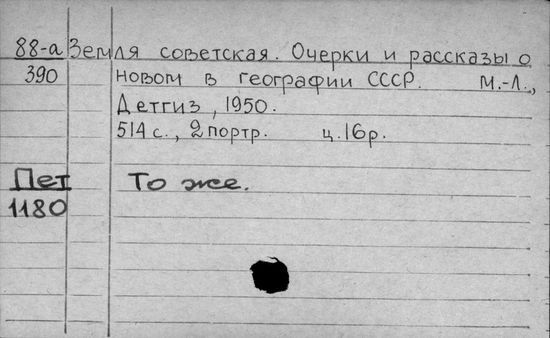 88-а Земля советская. Очерки и рассказы о
390 новом в географии СССР. М.-Л.,
Детгиз, 1950.
514 с., 2 портр. ц. 16 р.
Пет То же.
1180